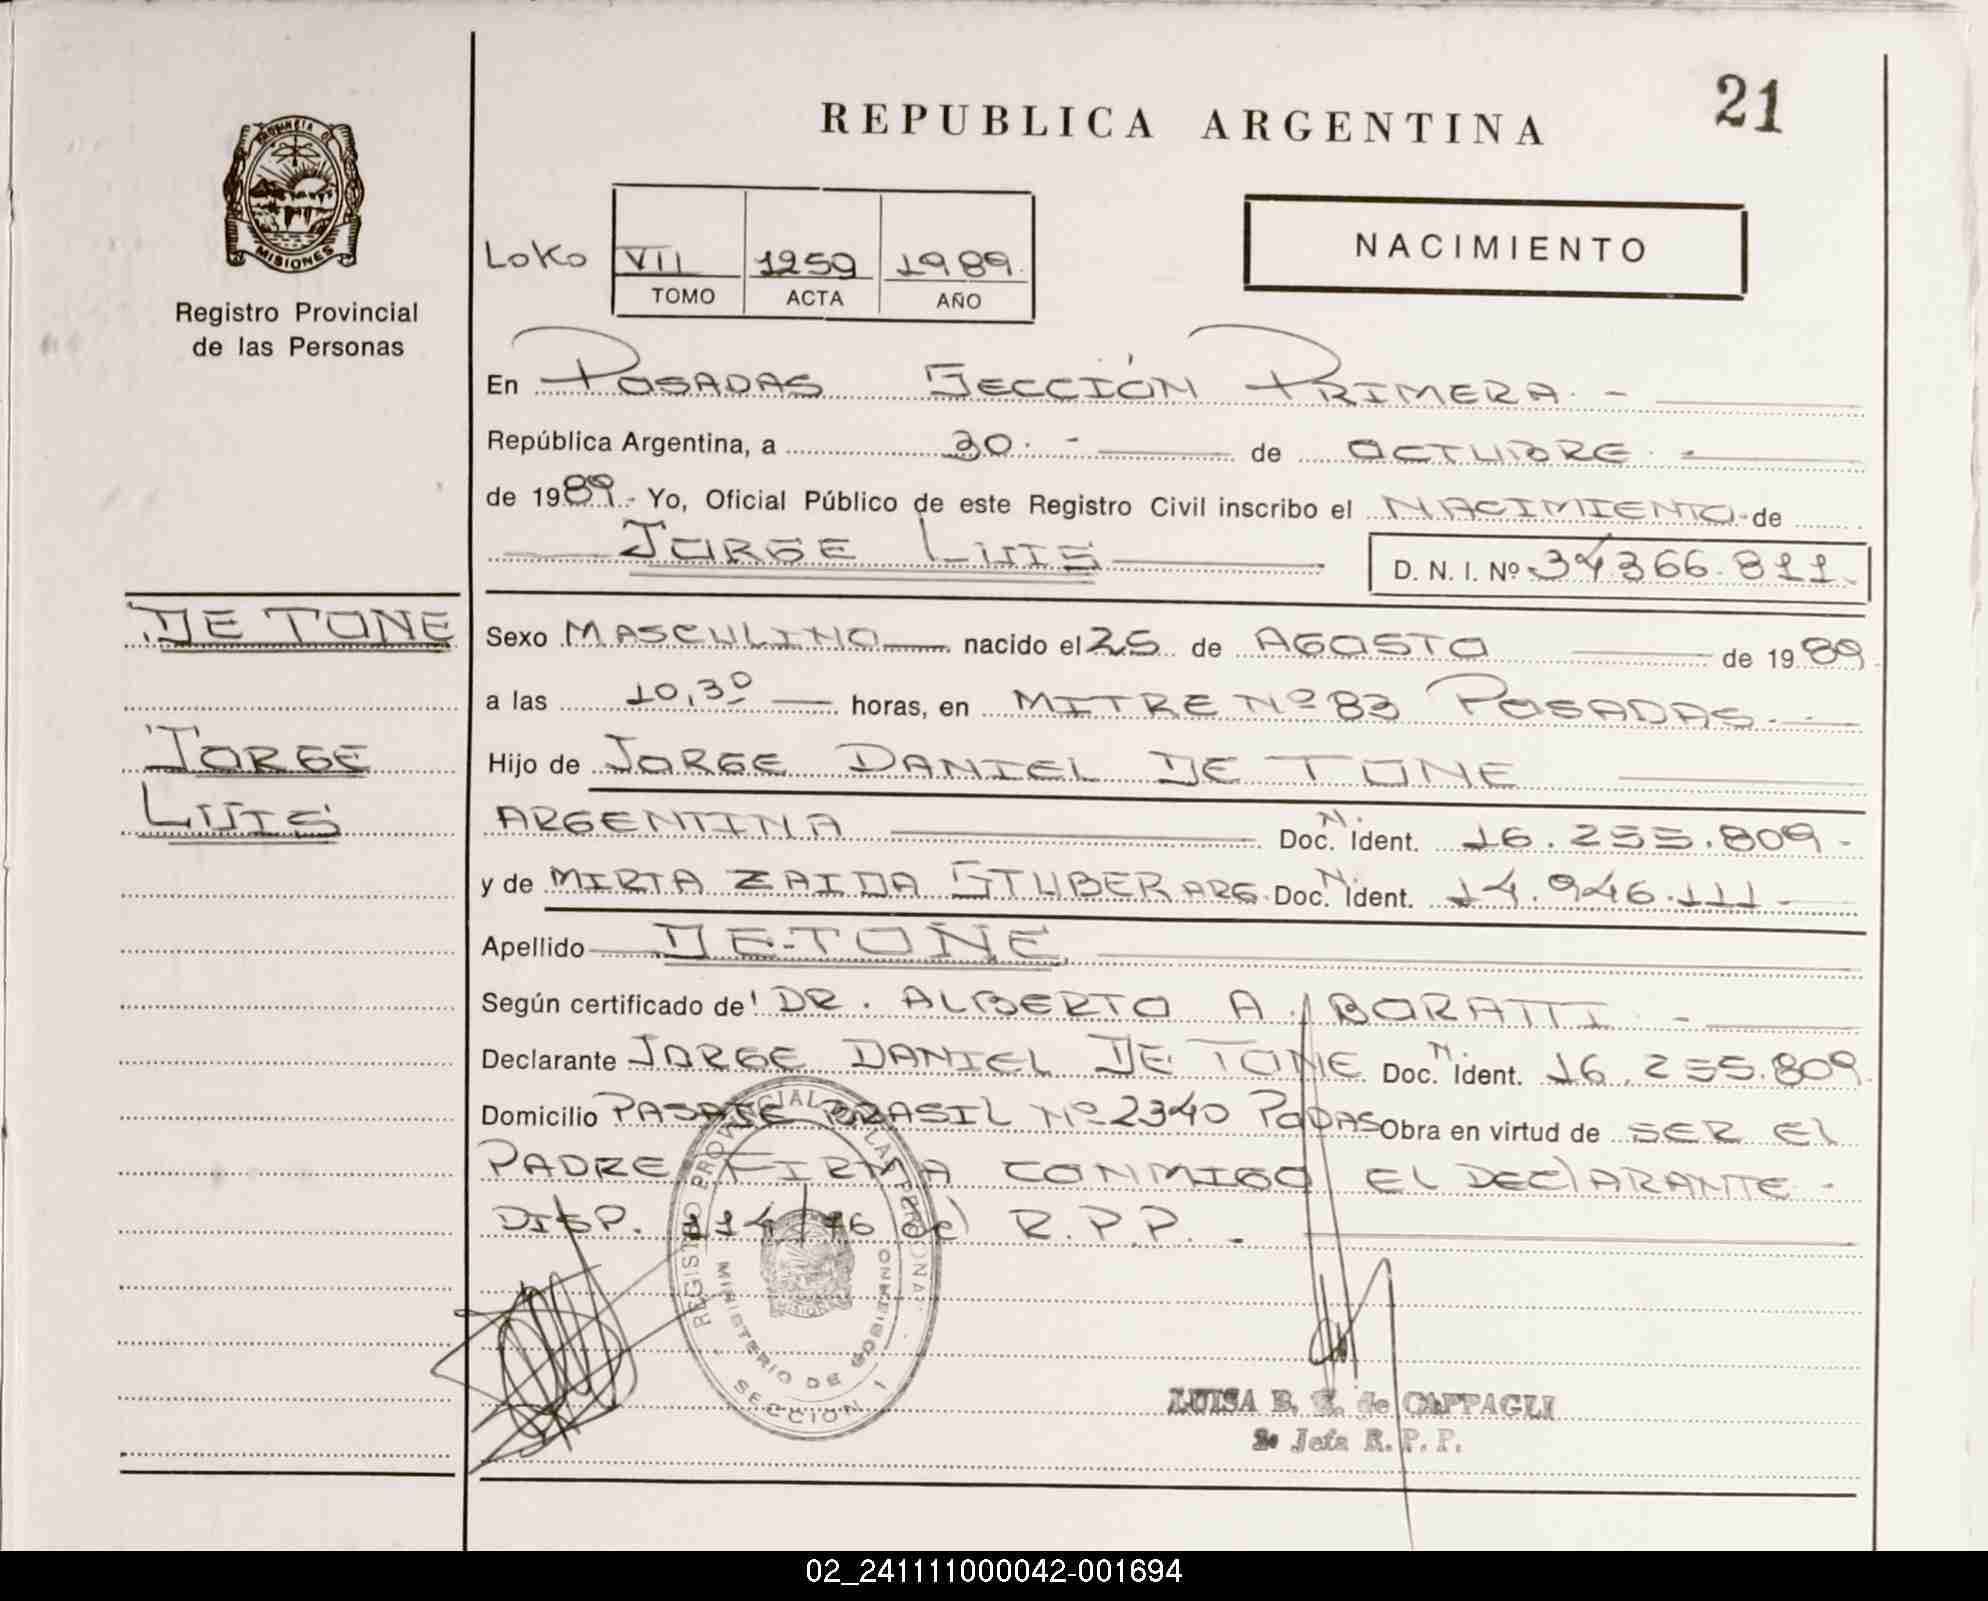 21
REPUBLICA ARGENTINA
PROVINCIA DE
MISIONES
Registro Provincial
de las Personas
NACIMIENTO
Loko VII 1259 1989.
TOMO ACTA AÑO
En POSADAS SECCIÓN PRIMERA. -
República Argentina, a 30. - de OCTUBRE. -
de 1989.- Yo, Oficial Público de este Registro Civil inscribo el NACIMIENTO de
JORGE LUIS
D. N. I. Nº 34366.811.
DE TONE
JORGE
LUIS
Sexo MASCULINO nacido el 25 de AGOSTO de 1989
a las 10,30 horas, en MITRE Nº 83 POSADAS. -
Hijo de JORGE DANIEL DE TONE
ARGENTINA Doc. N. Ident. 16.255.809-
y de MIRTA ZAIDA STUBER ARG. Doc. N. Ident. 14.946.111-
Apellido DE-TONE.
Según certificado de DR. ALBERTO A. BORATTI. -
Declarante JORGE DANIEL DE TONE Doc. N. Ident. 16.255.809
Domicilio PASAJE BRASIL Nº 2340 PODAS Obra en virtud de SER El
PADRE FIRMA CONMIGO EL DEClARANTE -
DISP. 114/76 del R.P.P. -
REGISTRO PROVINCIAL DE LAS PERSONAS
MINISTERIO DE GOBIERNO
SECCION 1
LUISA B. de CAPPAGLI
2º Jefa R. P. P.
02_241111000042-001694